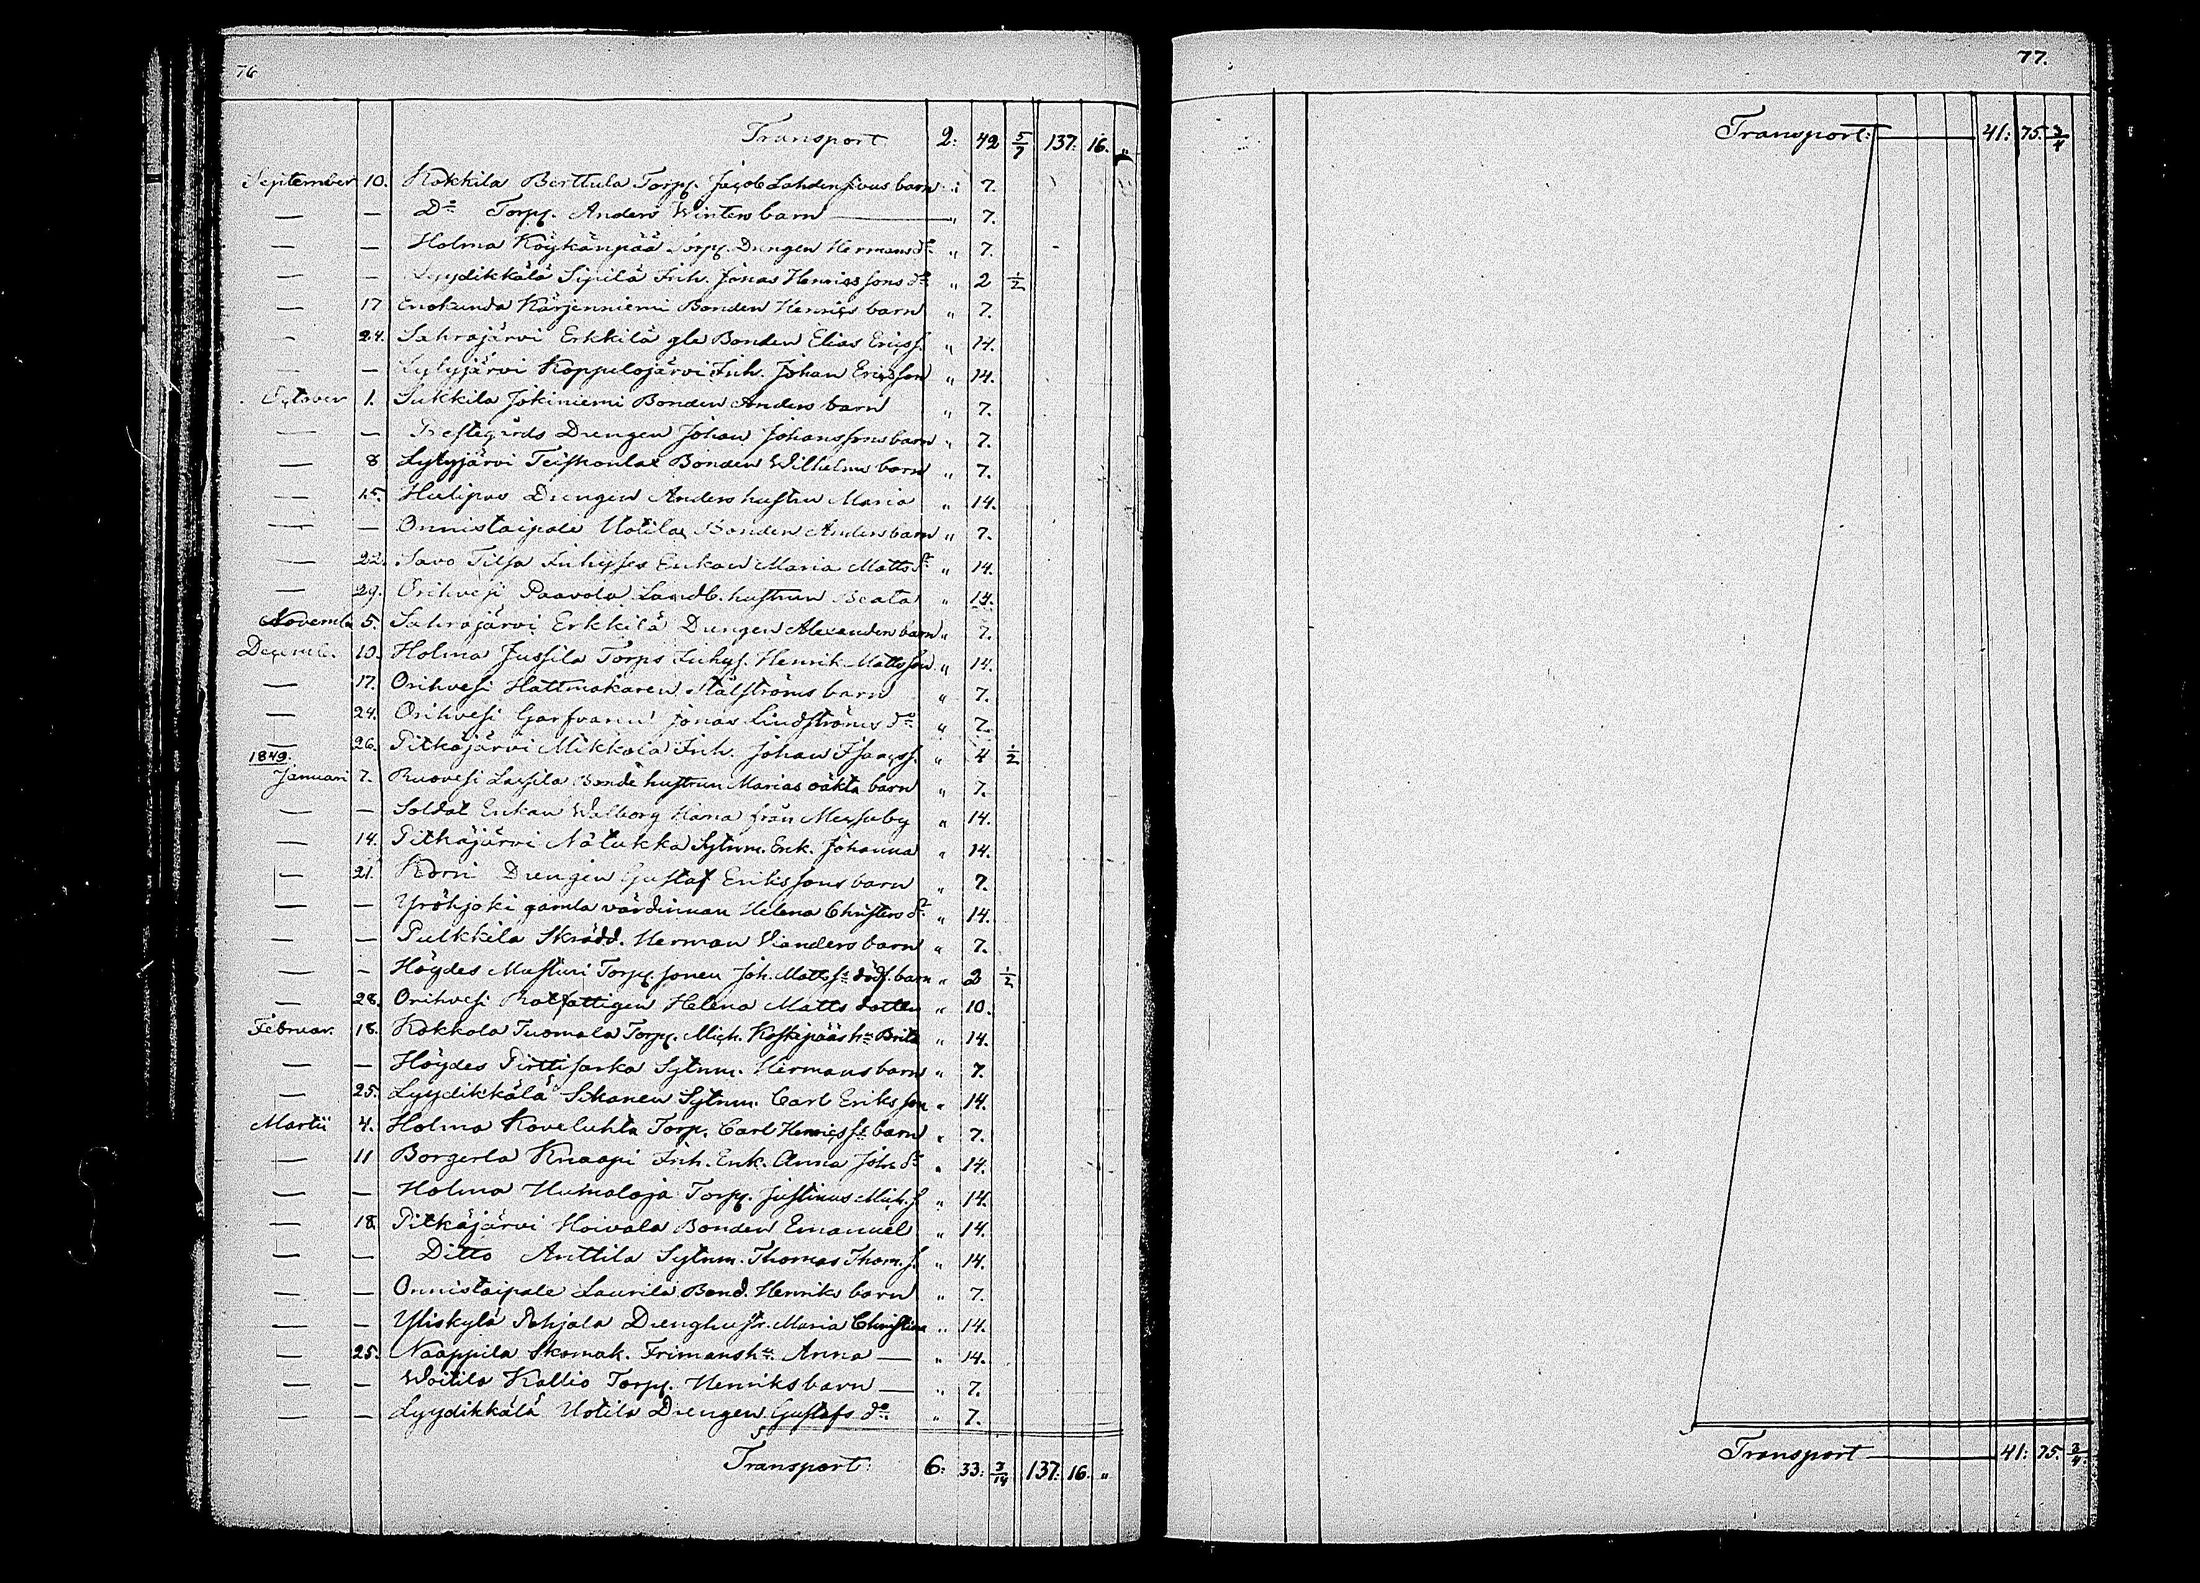 76
Transport 2: 42 5/7 137: 16. "
September 10. Kokkila Berttula Torp. Jacob Lahdensivus barn " 7.
— — Do Torp. Anders Winters barn — " 7.
— — Holma Köykänpää Torp. Drengen Hermans do " 7.
— — Lyydikkälä Sipilä Inh. Jonas Henrics sons do " 2 1/2
— 17 Enokunda Kärjenniemi Bonden Henrics barn " 7.
— 24. Sahrajärvi Erkkilä gle Bonden Elias Erics s. " 14.
— — Lylyjärvi Koppelojärvi Inh. Johan Ericsson " 14.
October 1. Sukkila Jokiniemi Bonden Anders barn " 7.
— — Prestegårds Drengen Johan Johanssons barn " 7.
— 8 Lylyjärvi Teiskonlax Bonden Wilhelms barn " 7.
— 15. Hulipas Drengen Anders hustru Maria " 14.
— — Onnistaipale Uotila Bonden Anders barn " 7.
— 22. Savo Tilsa Inhyses Enkan Maria Matts dr " 14.
— 29. Orihvesi Paavola Landb. hustrun Beata " 14.
Novemb. 5. Sahrajärvi Erkkilä Drengen Alexanders barn " 7.
Decemb. 10. Holma Jussila Torps Inhys. Henrik Mattsson " 14.
— 17. Orihvesi Hattmakaren Stålströms barn " 7.
— 24. Orihvesi Garfvarn Jonas Lindströms do " 7.
— 26. Pitkäjärvi Mikkola Inh. Johan Isaacs s. " 4 1/2
1849.
Januari 7. Ruovesi Lassila Bonde hustrun Marias oäkta barn " 7.
— — Soldat Enkan Walborg Hana från Messuby " 14.
— 14. Pitkäjärvi Nälukka Sytnm. Enk. Johanna " 14.
— 21. Korri Drengen Gustaf Erikssons barn " 7.
— — Yröhjoki gamla värdinnan Helena Christers dr " 14.
— — Pulkkila Skrädd. Herman Vianders barn " 7.
— — Höydes Musturi Torp. sonen Joh. Matts sns dödf. barn " 2 1/2
— 28. Orihvesi Rotfattigen Helena Matts dotter " 10.
Februar. 18. Kokkola Tuomala Torp. Mich. Koskipääs hu Brita " 14.
— — Höydes Pirttisarka Sytnm. Hermans barn " 7.
— 25. Lyydikkälä Sikanen Sytnm. Carl Eriksson " 14.
Martii 4. Holma Koveluhta Torp. Carl Henrics sns barn " 7.
— 11 Borgerla Knaapi Inh. Enk. Anna Joh. dr " 14.
— — Holma Humaloja Torp. Justinus Mich. s. " 14.
— 18 Pitkäjärvi Hoivala Bonden Emanuel " 14.
— — Ditto Anttila Sytnm. Thomas Thom. s. " 14.
— — Onnistaipale Laurila Bond. Henriks barn " 7.
— — Yliskylä Pohjala Drenghustr. Maria Christina " 14.
— 25. Naappila Skomak. Frimans hu Anna — " 14.
— — Woitila Kallio Torp. Henriks barn — " 7.
— — Lyydikkälä Uotila Drengen Gustafs do " 7.
Transport: 6: 33: 3/14 137: 16. "
77.
Transport: — 41: 75. 3/4
Transport — 41: 75. 3/4